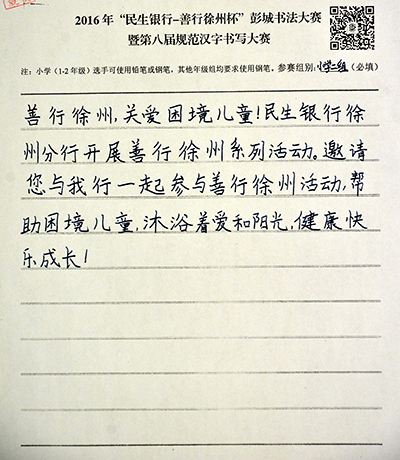 2016年“民生银行-善行徐州杯”彭城书法大赛
暨第八届规范汉字书写大赛
注：小学（1-2年级）选手可使用铅笔或钢笔，其他年级组均要求使用钢笔。参赛组别：小学二组（必填）
善行徐州，关爱困境儿童！民生银行徐
州分行开展善行徐州系列活动。邀请
您与我行一起参与善行徐州活动，帮
助困境儿童，沐浴着爱和阳光，健康快
乐成长！